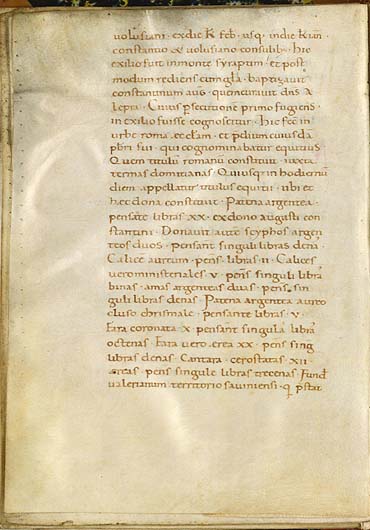 uolusiani · ex die K̄ feb · usq; in die K̄ ian
constantio & uolusiano consulib; · hic
exilio fuit in monte syraptim · et post
modum rediens cum gl̄a · baptizauit
constantinum aug̅ · quem curauit dn̄s A
lepra · Cuius persecutione primo fugiens ·
in exilio fuisse cognoscitur · hic fec̄ in
urbe roma ecclam · et p̄dium cuiusda̅
pbri sui · qui cognominabatur equitius
Quem titulum romanu̅ constituit · iuxta
termas domitianas · Qui usq; in hodiernu̅
diem appellatur titulus equitii · ubi et
hec dona constituit · Patena argentea ·
pensate libras · XX · ex dono augusti con
stantini · Donauit aute̅ scyphos argen
teos duos · pensant singuli libras dena̅ ·
Calice aureum · pens̄ libras · II · Calices
uero ministeriales · V · pens̄ singuli libra̅
binas · amas argenteas duas · pens̄ sin
guli libras denas · Patena argentea auro
cluso chrismale · pensante libras · V ·
Fara coronata · X · pensant singula libra̅
octenas · Fara uero erea XX · pens̄ sing
libras denas · Cantara · cerostatas · XII ·
ereas · pens̄ singule libras trecenas · Fund̄
ualerianum · territorio sauiniensi · q̄ p̄stat